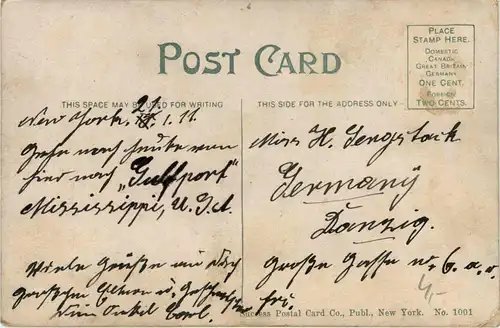 POST CARD
PLACE
STAMP HERE.
DOMESTIC
CANADA
GREAT BRITAIN
GERMANY
ONE CENT.
FOREIGN
TWO CENTS.
THIS SPACE MAY BE USED FOR WRITING
THIS SIDE FOR THE ADDRESS ONLY
New York. 21. 1. 11.
Gehe noch heute von
hier nach "Gulfport"
Mississippi, U.S.A.
Viele Grüße an Dich
Eltern u. Geschwister
Dein Onkel Carl.
Miss H. Sengstock
Germany
Danzig.
Große Gasse N. 6. a.
4,-
Success Postal Card Co., Publ., New York. No. 1091